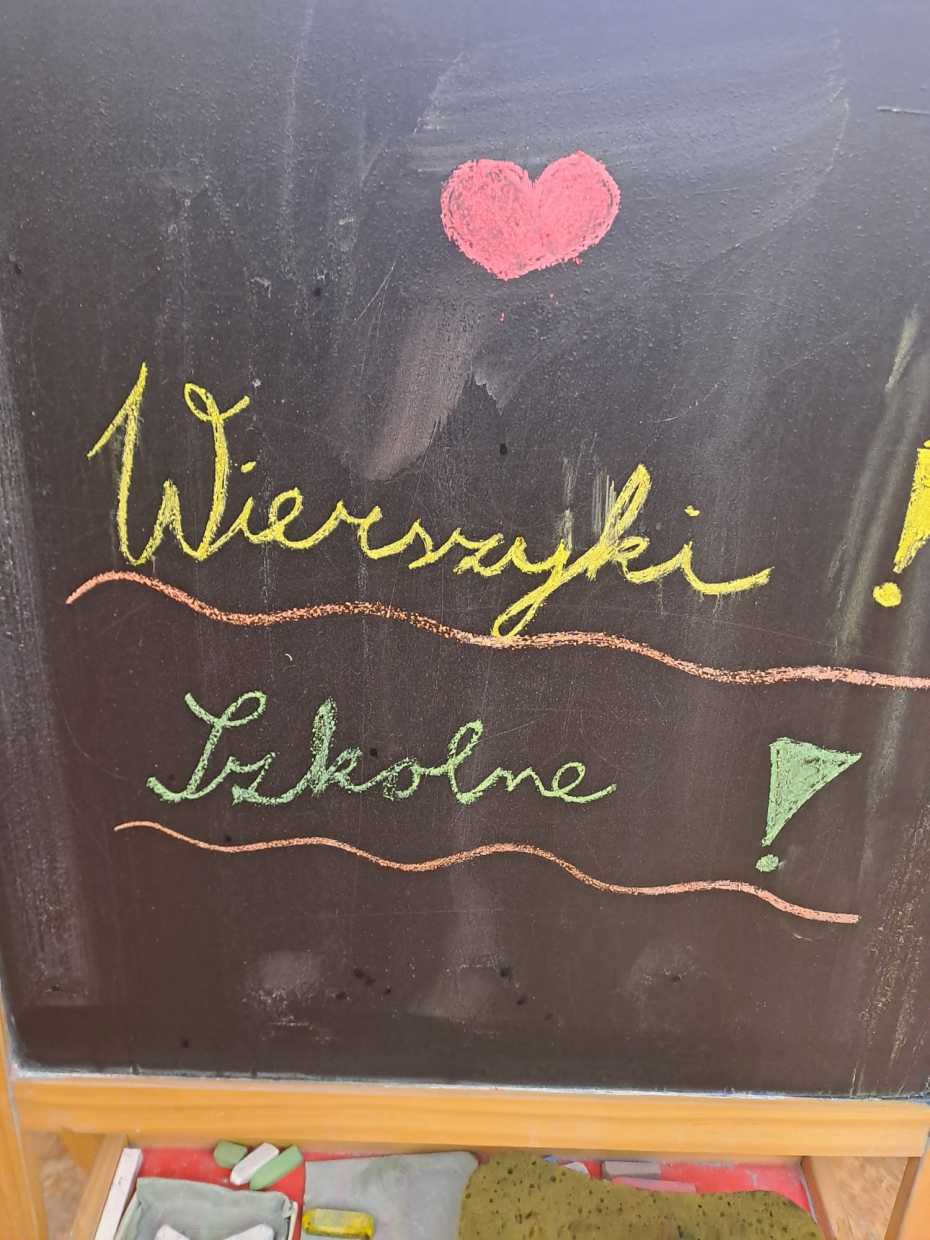 Wierszyki !
Szkolne !